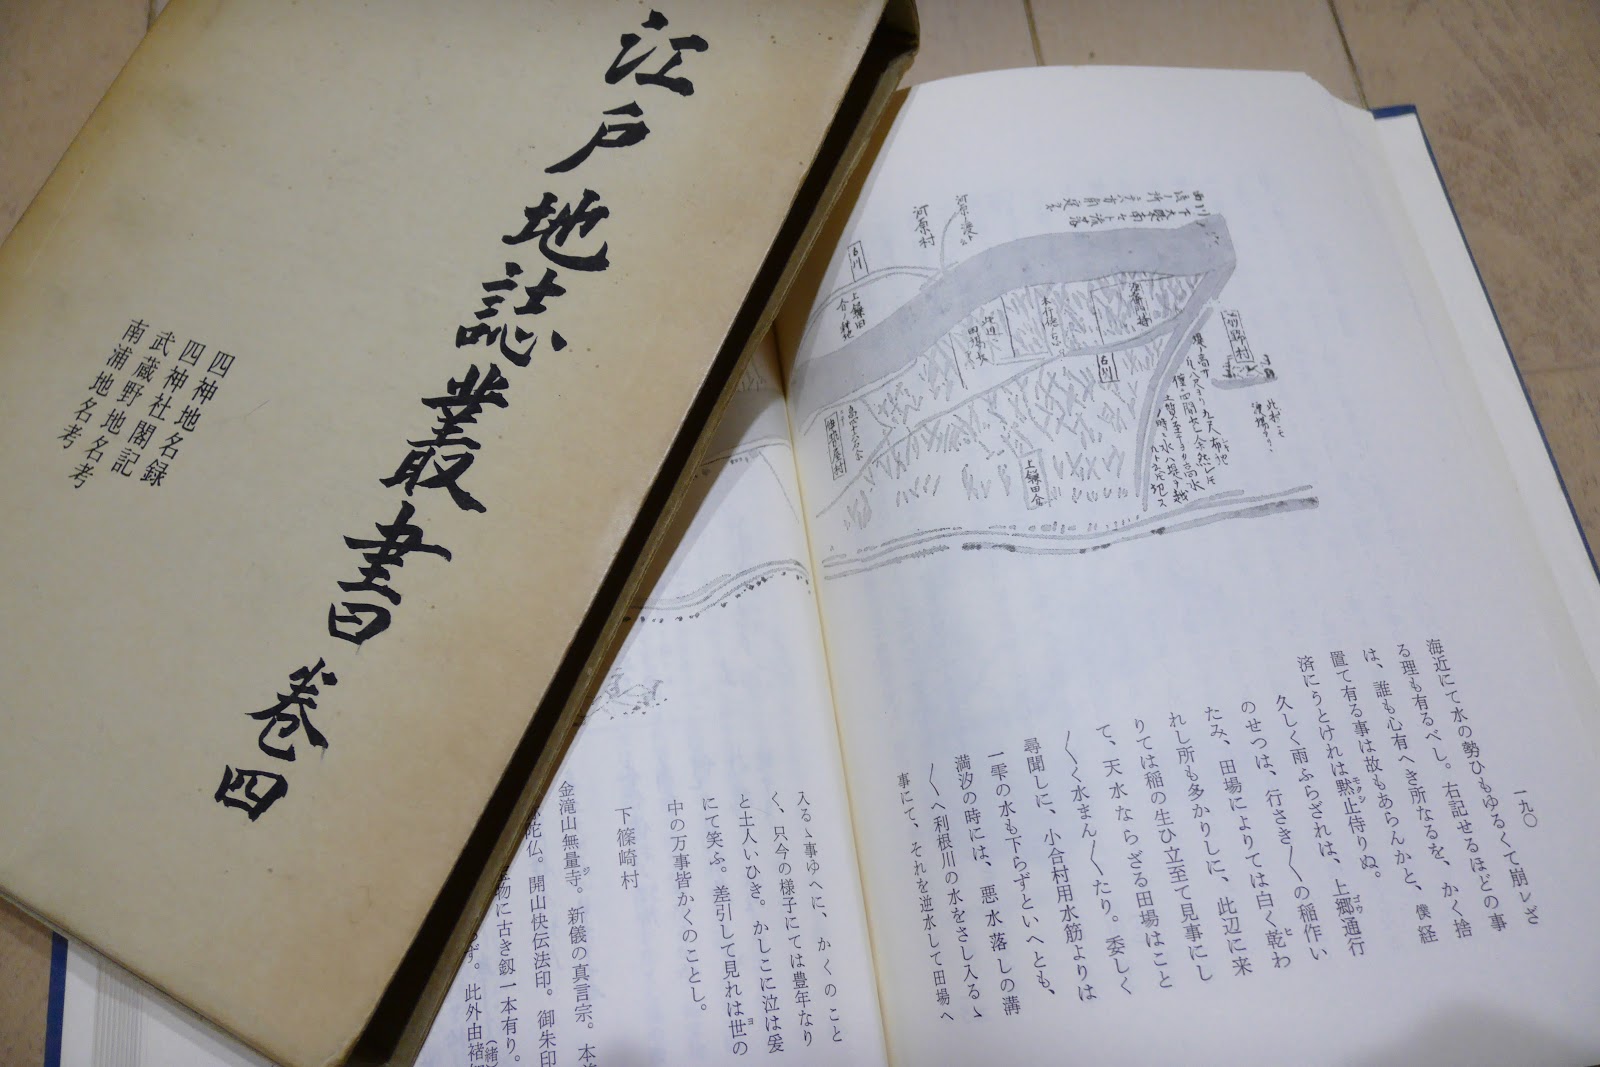 江戸地誌叢書 巻四
四神地名録
四神社閣記
武蔵野地名考
南浦地名考
一九〇
河原村
古川
上鎌田
古川
上鎌田分
海近にて水の勢ひもゆるくて崩レざ
る理も有るべし。右記せるほどの事
は、誰も心有へき所なるを、かく捨
置て有る事は故もあらんかと、僕経
済にうとけれは黙止侍りぬ。
モクシ
久しく雨ふらざれは、上郷通行
ゴウ
のせつは、行さき〳〵の稲作い
たみ、田場によりては白く乾わ
ヒ
れし所も多かりしに、此辺に来
りては稲の生ひ立至て見事にし
て、天水ならざる田場はこと
〴〵く水まん〳〵たり。委しく
尋聞しに、小合村用水筋よりは
一雫の水も下らずといへとも、
満汐の時には、悪水落しの溝
〳〵へ利根川の水をさし入るゝ
事にて、それを逆水して田場へ
入るゝ事ゆへに、かくのこと
く、只今の様子にては豊年なり
と土人いひき。かしこに泣は爰
にて笑ふ。差引して見れは世の
ヨ
中の万事皆かくのことし。
下篠崎村
金滝山無量寺。新儀の真言宗。
ジ
陀仏。開山快伝法印。御朱印
物に古き釼一本有り。
ず。此外由緒
(緒)